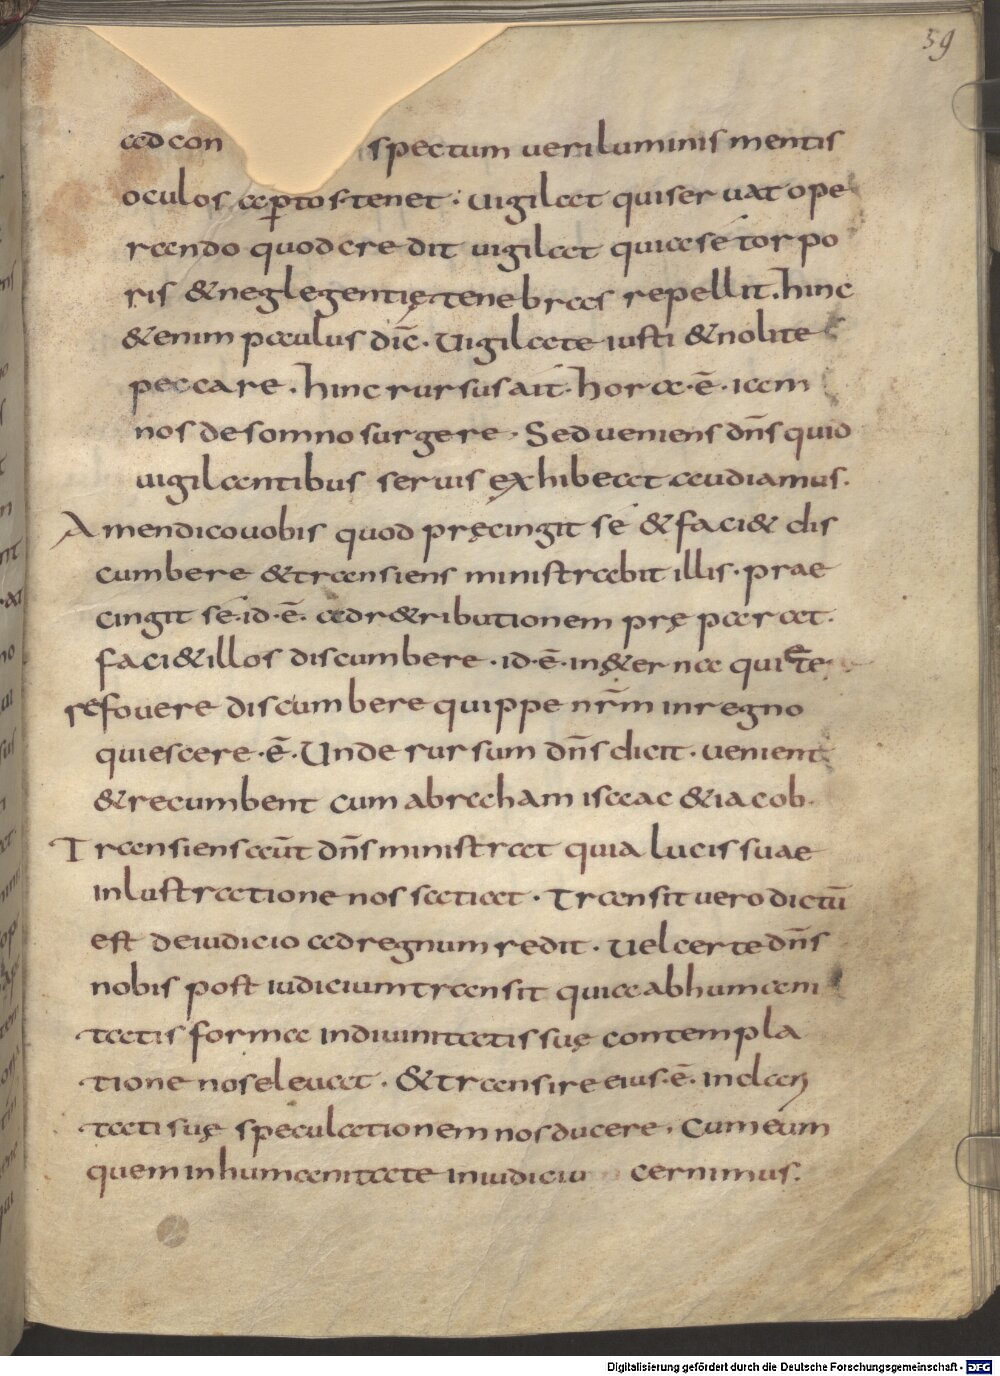 59
ad con spectum veri luminis mentis
oculos aptos tenet. uigilat qui servat ope
rando quod credit uigilat qui a se torpo
ris & neglegentię tenebras repellit. hinc
& enim paulus dic̄. Uigilate iusti & nolite
peccare. hinc rursus ait. hora .ē. iam
nos de somno surgere. Sed ueniens dn̄s quid
uigilantibus seruis exhibeat audiamus.
Amen dico uobis quod pręcingit se & faci& dis
cumbere & transiens ministrabit illis. prae
cingit se .id.ē. ad r&ributionem prę parat.
faci& illos discumbere .id.ē. in &erna quiete
refouere discumbere quippe nr̄m in regno
quiescere .ē. Unde rursum dn̄s dicit. uenient
& recumbent cum abraham isaac & iacob.
Transiens aūt dn̄s ministrat quia lucis suae
inlustratione nos satiat. Transit uero dictū
est de iudicio ad regnum redit. uel certe dn̄s
nobis post iudicium transit qui a ab humani
tatis forma in diuinitatis suę contempla
tione nos eleuat. & transire eius .ē. in clari
tati suę speculationem nos ducere. Cum eum
quem in humanitate in iudiciu cernimus.
Digitalisierung gefördert durch die Deutsche Forschungsgemeinschaft - DFG